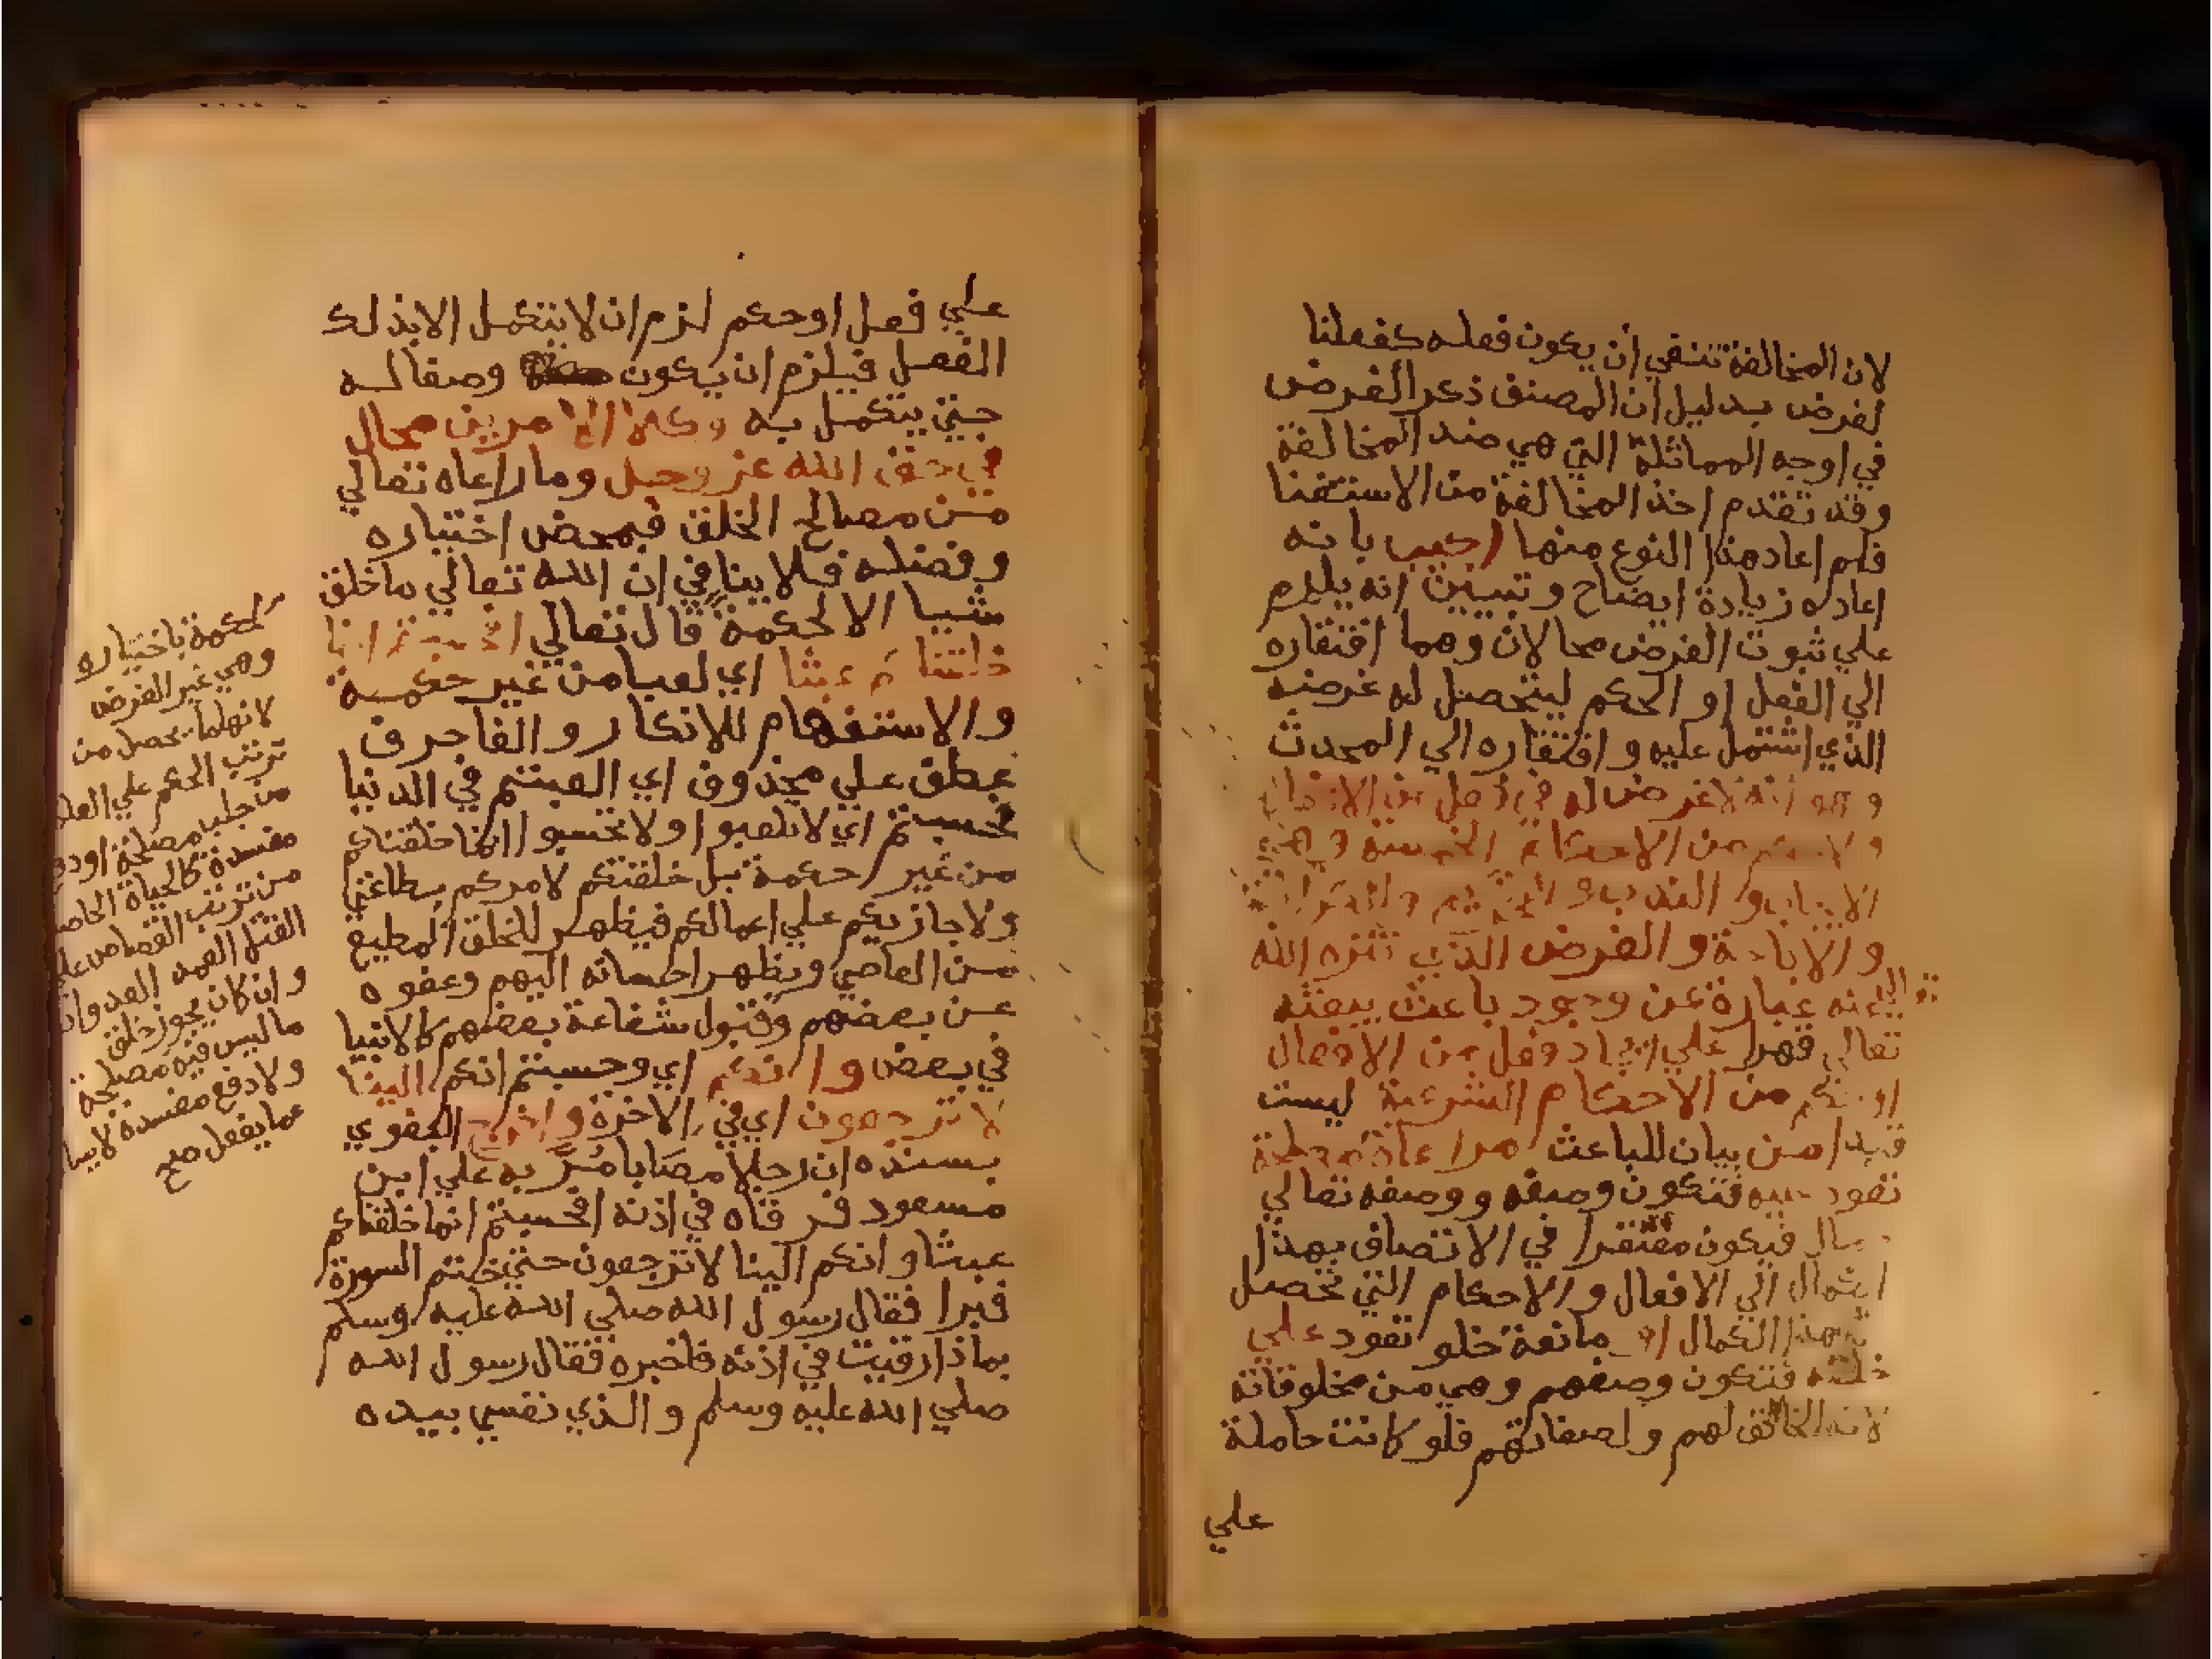 لان المخالفة تنفي أن يكون فعله كفعلنا
لغرض بدليل ان المصنف ذكر الغرض
في اوجه المماثلة التي هي ضد المخالفة
وقد تقدم اخذ المخالفة من الاستغنا
فلم اعاد هذا النوع منها اجيب بانه
اعاده زيادة ايضاح وتبيين انه يلزم
علي ثبوت الغرض محالان وهما افتقاره
الي الفعل او الحكم ليتحصل له غرضه
الذي اشتمل عليه وافتقاره الي المحدث
وهو انه لا غرض له في فعل من الافعال
ولا حكم من الاحكام الخمسة وهي
الايجاب والندب والتحريم والكراهة
والاباحة والغرض الذي تنزه الله
تعالي عنه عبارة عن وجود باعث يبعثه
تعالي قهرا علي ايجاد فعل من الافعال
او حكم من الاحكام الشرعية ليست
قيدا من بيان للباعث مراعاة مصلحة
تعود اليه فتكون وصفه ووصفه تعالي
كمال فيكون مفتقرا في الاتصاف بهذا
الكمال الي الافعال والاحكام التي تحصل
بهذا الكمال او مانعة خلو تعود علي
خلقه فتكون وصفهم وهي من مخلوقاته
لانه الخالق لهم ولصفاتهم فلو كانت حاملة
علي
علي فعل او حكم لزم ان لا يتكمل الا بذلك
الفعل فيلزم ان يكون وصفا له
حتي يتكمل به وكلا الامرين محال
في حق الله عز وجل وما راعاه تعالي
من مصالح الخلق فبمحض اختياره
وفضله فلا ينافي ان الله تعالي ما خلق
شيا الا لحكمة قال تعالي افحسبتم انما
خلقناكم عبثا اي لعبا من غير حكمة
والاستفهام للانكار والفا حرف
عطف علي محذوف اي العبتم في الدنيا
فحسبتم اي لا تلعبوا ولا تحسبوا انما خلقناكم
من غير حكمة بل خلقتكم لامركم بطاعتي
ولاجازيكم علي اعمالكم فيظهر للخلق المطيع
من العاصي ويظهر احسانه اليهم وعفوه
عن بعضهم وقبول شفاعة بعضهم كالانبيا
في بعض وانكم اي وحسبتم انكم الينا
لا ترجعون اي في الاخرة واخرج البغوي
بسنده ان رجلا مصابا مُرَّ به علي ابن
مسعود فرقاه في اذنه افحسبتم انما خلقناكم
عبثا وانكم الينا لا ترجعون حتي ختم السورة
فبرا فقال رسول الله صلي الله عليه وسلم
بماذا رقيت في اذنه فاخبره فقال رسول الله
صلي الله عليه وسلم والذي نفسي بيده
لحكمة باختياره
وهي غير الغرض
لانها ما يحصل من
ترتب الحكم علي العلة
من جلب مصلحة او دفع
مفسدة كالحياة الحاصلة
من ترتب القصاص علي
القتل العمد العدوان
وان كان يجوز خلق
ما ليس فيه مصلحة
ولا دفع مفسدة لا يسال
عما يفعل صح